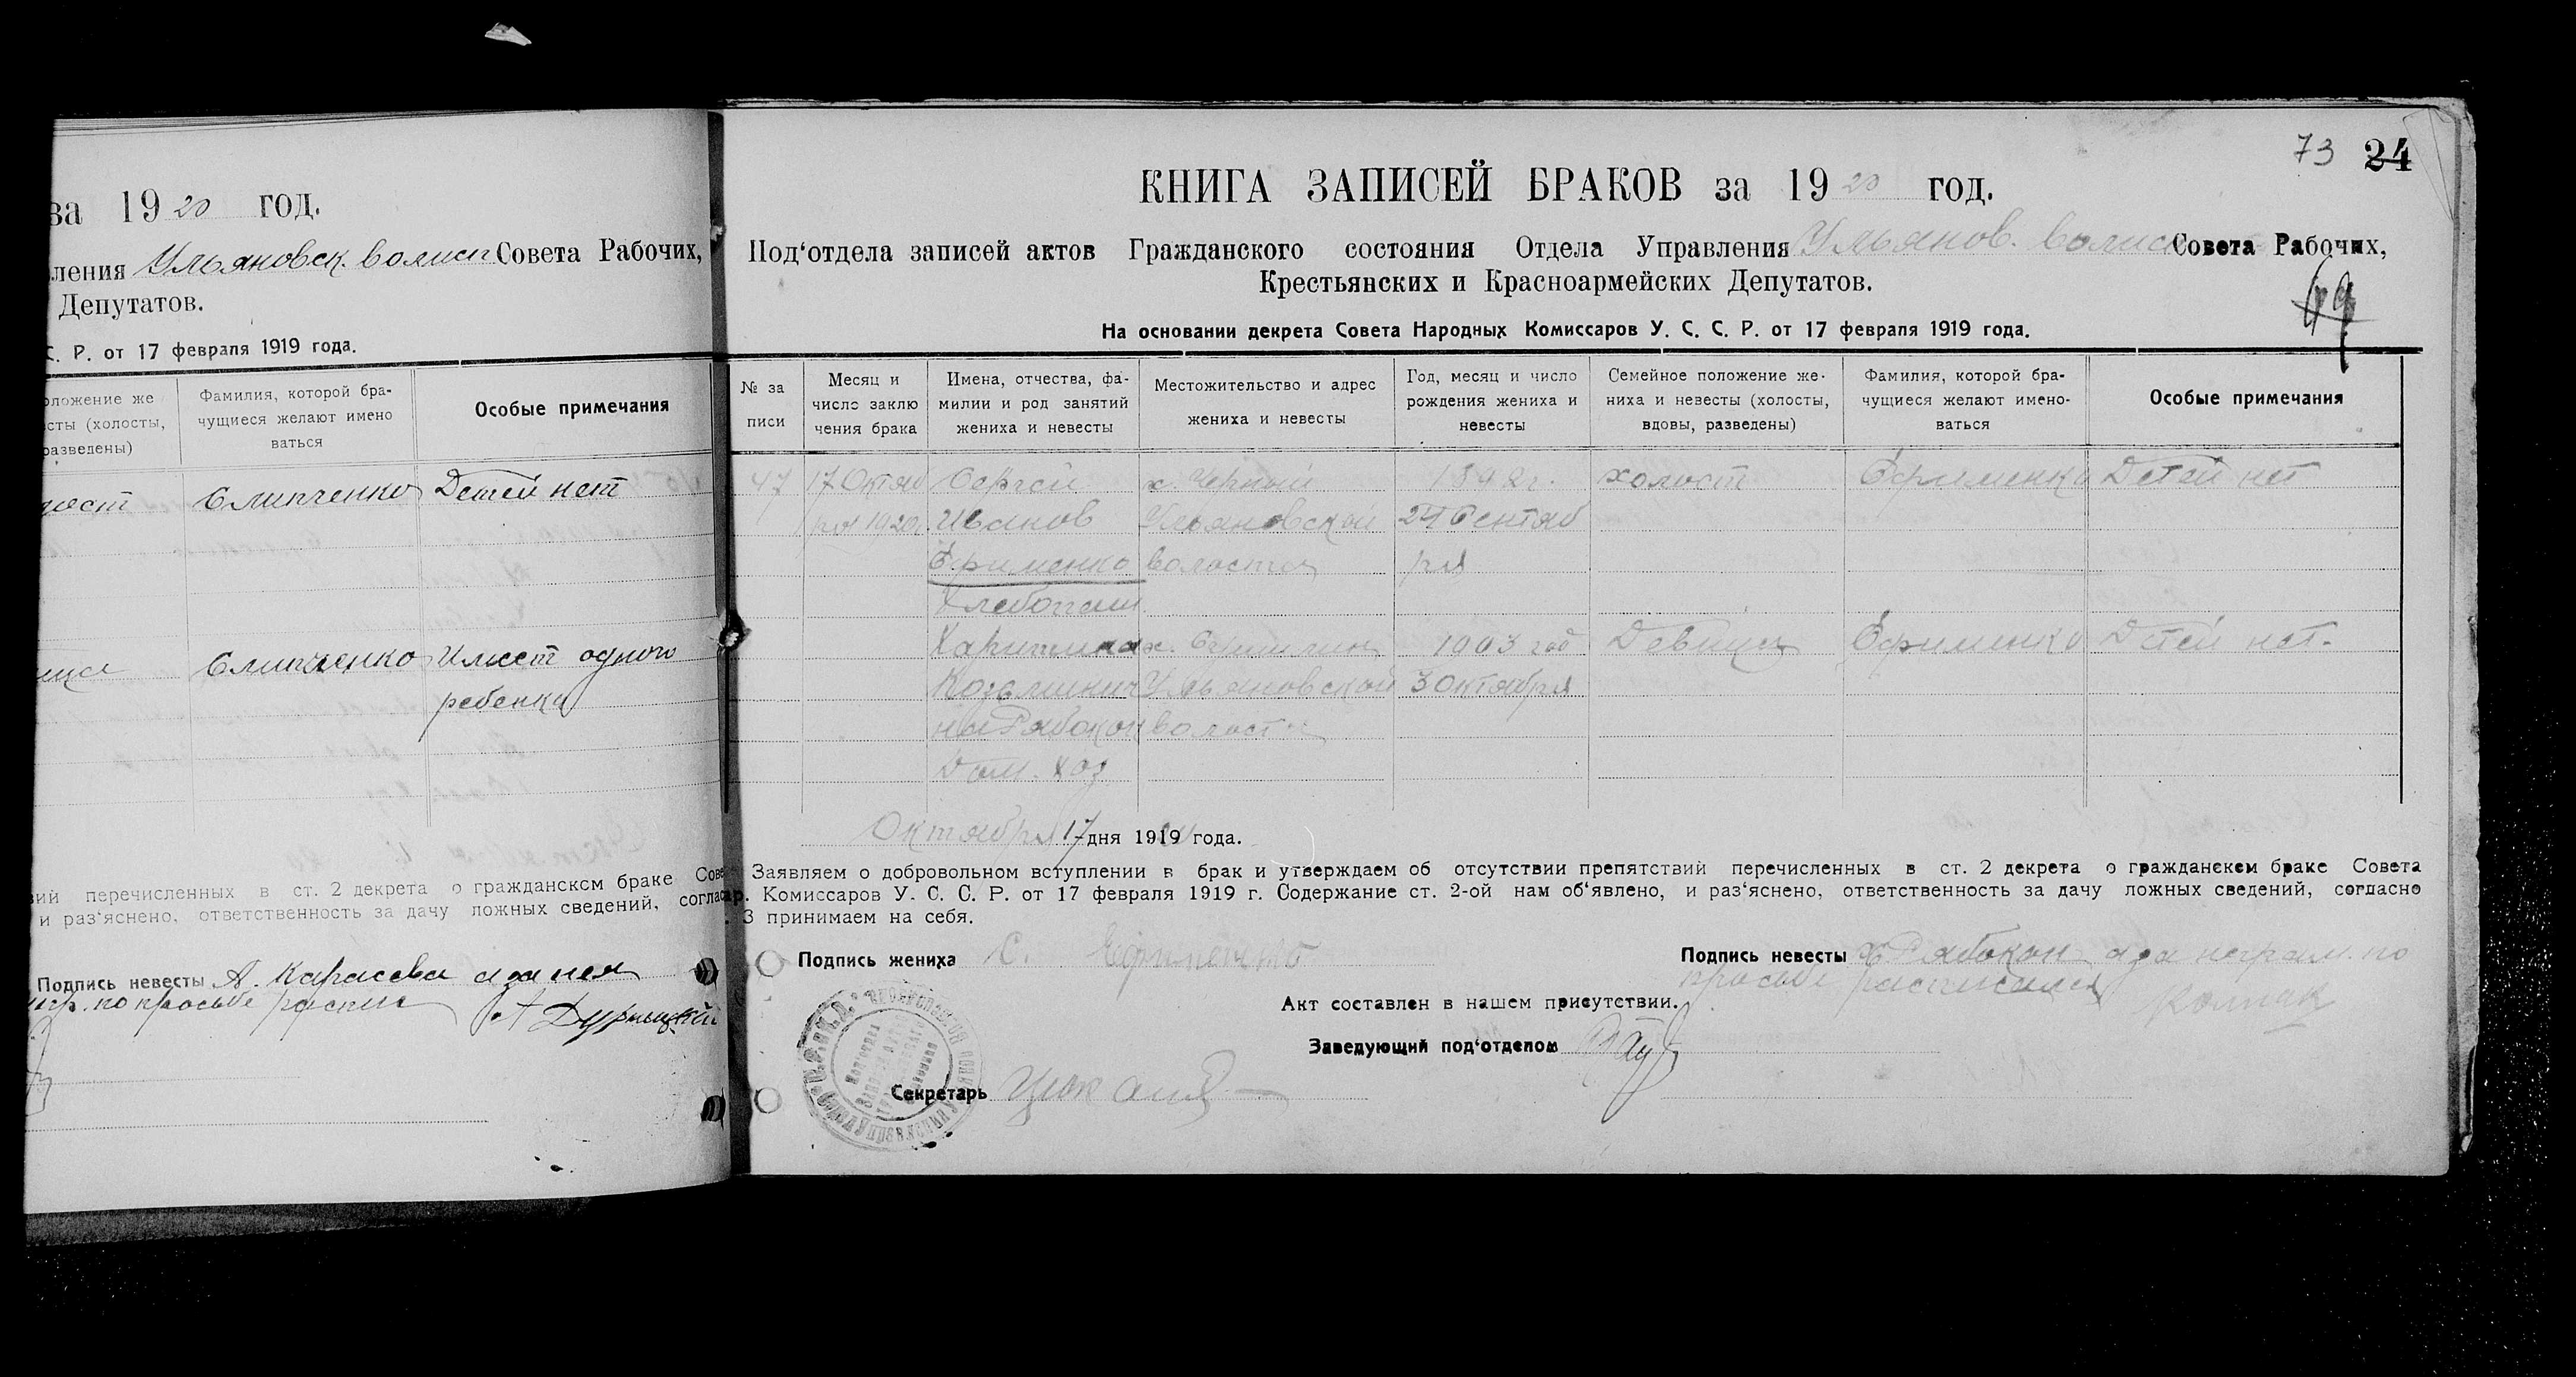 за 1920 год.
ления Ульяновск. волисп Совета Рабочих,
Депутатов.
С. Р. от 17 февраля 1919 года.
оложение же
сты (холосты,
разведены)
Фамилия, которой бра-
чущиеся желают имено
ваться
Особые примечания
лост Слипченко Детей нет
ица Слипченко Имеет одного
ребенка
вий перечисленных в ст. 2 декрета о гражданском браке Сове
и раз'яснено, ответственность за дачу ложных сведений, соглас
Подпись невесты А. Карасева а за нея
негр. по просьбе распис
73 24
КНИГА ЗАПИСЕЙ БРАКОВ за 1920 год.
Под'отдела записей актов Гражданского состояния Отдела Управления Ульянов. волисп Совета Рабочих,
Крестьянских и Красноармейских Депутатов.
На основании декрета Совета Народных Комиссаров У. С. С. Р. от 17 февраля 1919 года.
№ за
писи
Месяц и
число заклю
чения брака
Имена, отчества, фа-
милии и род занятий
жениха и невесты
Местожительство и адрес
жениха и невесты
Год, месяц и число
рождения жениха и
невесты
Семейное положение же-
ниха и невесты (холосты,
вдовы, разведены)
Фамилия, которой бра-
чущиеся желают имено-
ваться
Особые примечания
47 17 Октяб Сергей х. Черный 1892 г. холост Ефименко Детей нет
ря 1920г. Иванов Ульяновской 24 Сентяб
Ефименко волости ря
Хлебопаш
Харитина х. 1903 год Девица Ефименко Детей нет.
Козьминич Ульяновской 3 Октября
на Рябокон волости
Дом. хоз
Октября 17 дня 1919 года.
Заявляем о добровольном вступлении в брак и утверждаем об отсутствии препятствий перечисленных в ст. 2 декрета о гражданском браке Совета
р. Комиссаров У. С. С. Р. от 17 февраля 1919 г. Содержание ст. 2-ой нам об'явлено, и раз'яснено, ответственность за дачу ложных сведений, согласно
3 принимаем на себя.
Подпись жениха С. Ефименко
Подпись невесты Х Рябокон а за неграм. по
просьбе расписался Колпак
Акт составлен в нашем присутствии.
Заведующий под'отделом
Секретарь